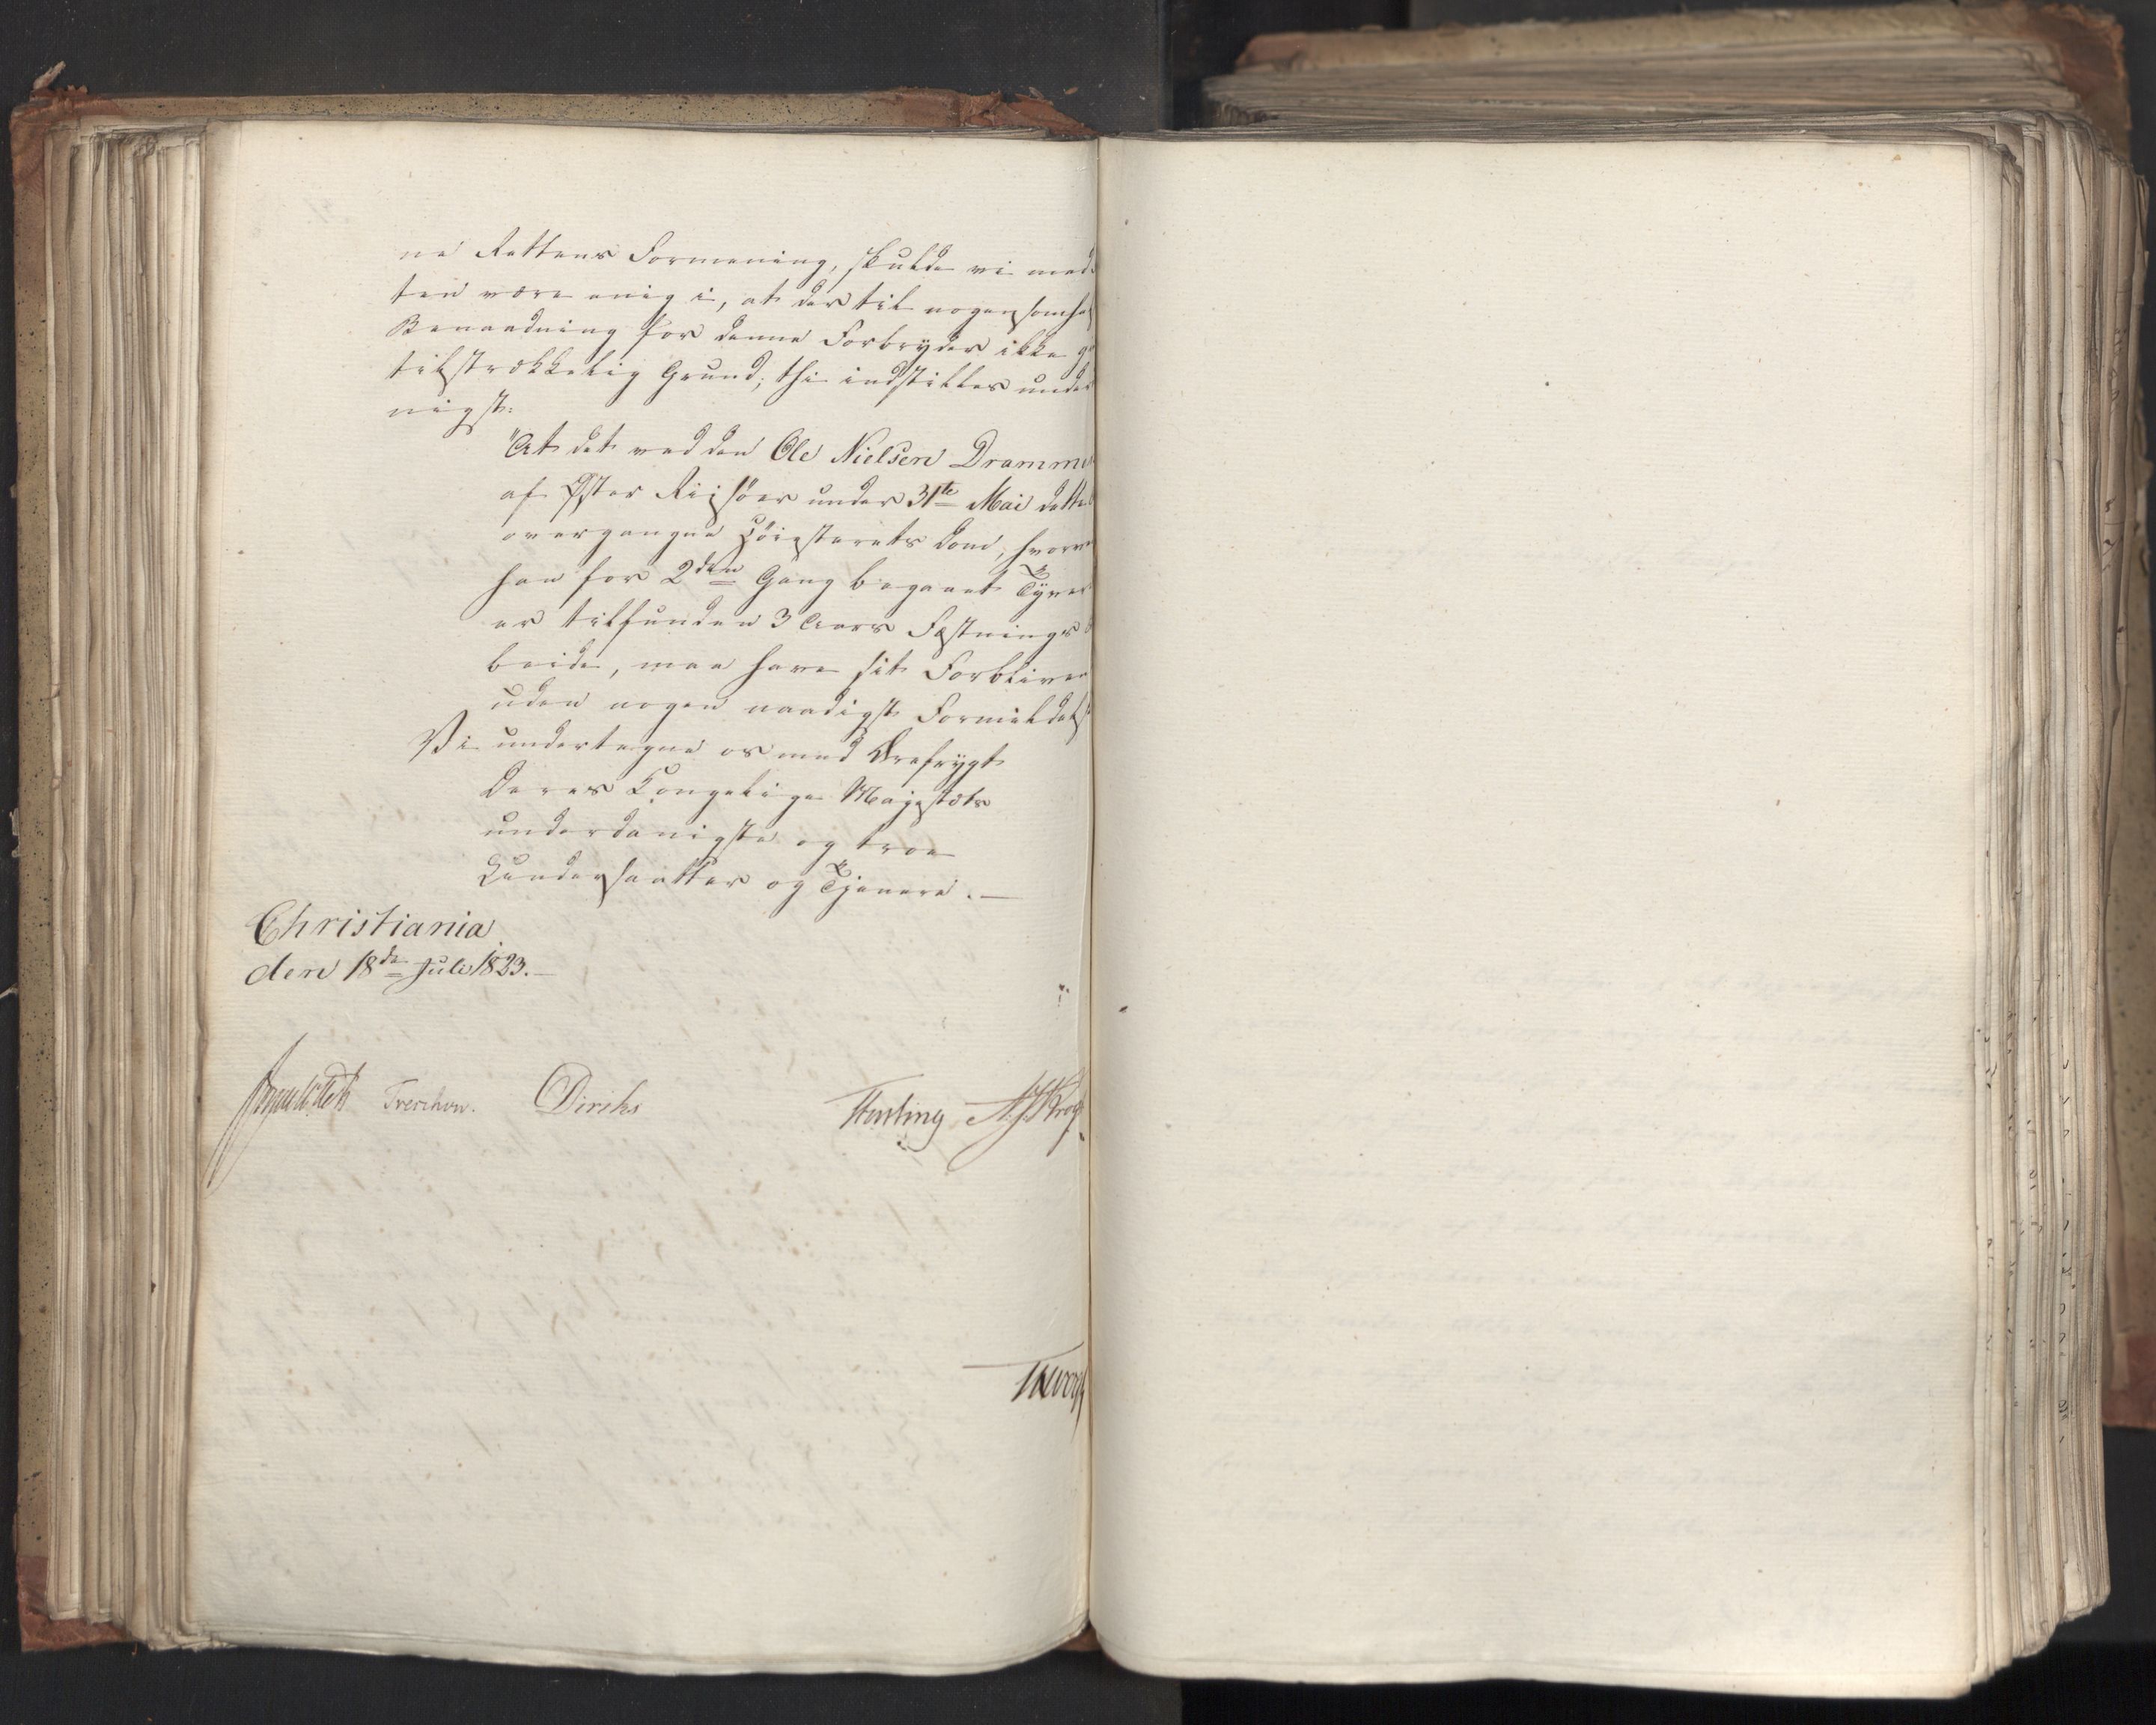 ne Rettens Formening, skulde vi med
ten være enig i, at der til nogensomhel
Benaadning for denne Forbryder ikke g
tilstrækkelig Grund; thi indstilles under
nigst:
"At det ved den Ole Nielsen Dramme
af Øster Riisöer under 31te Mai dette
overgangne Höiesterets Dom, hvorve
han for 2den Gang begaaet Tyver
er tilfunden 3 Aars Fæstnings
beide, maa have sit Forbliven
uden nogen naadigst Formildels
Vi undertegne os med Ærefrygt
Deres Kongelige Majestæts
underdanigste og troe
Undersaatter og Tjenere. —
Christiania
den 18de Juli 1823. —
Treschow. Diriks